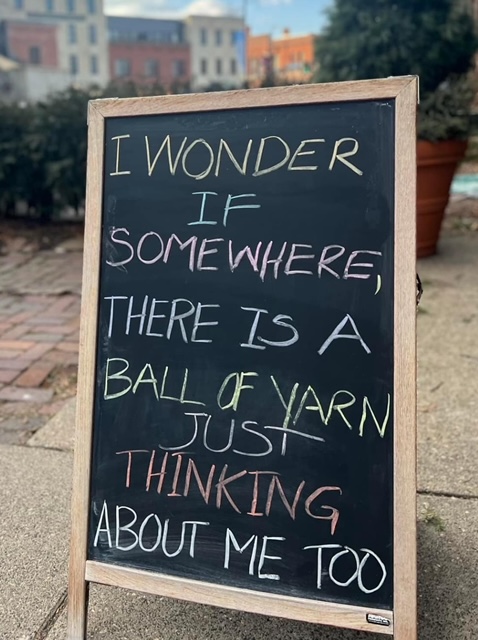 I WONDER
IF
SOMEWHERE,
THERE IS A
BALL OF YARN
JUST
THINKING
ABOUT ME TOO